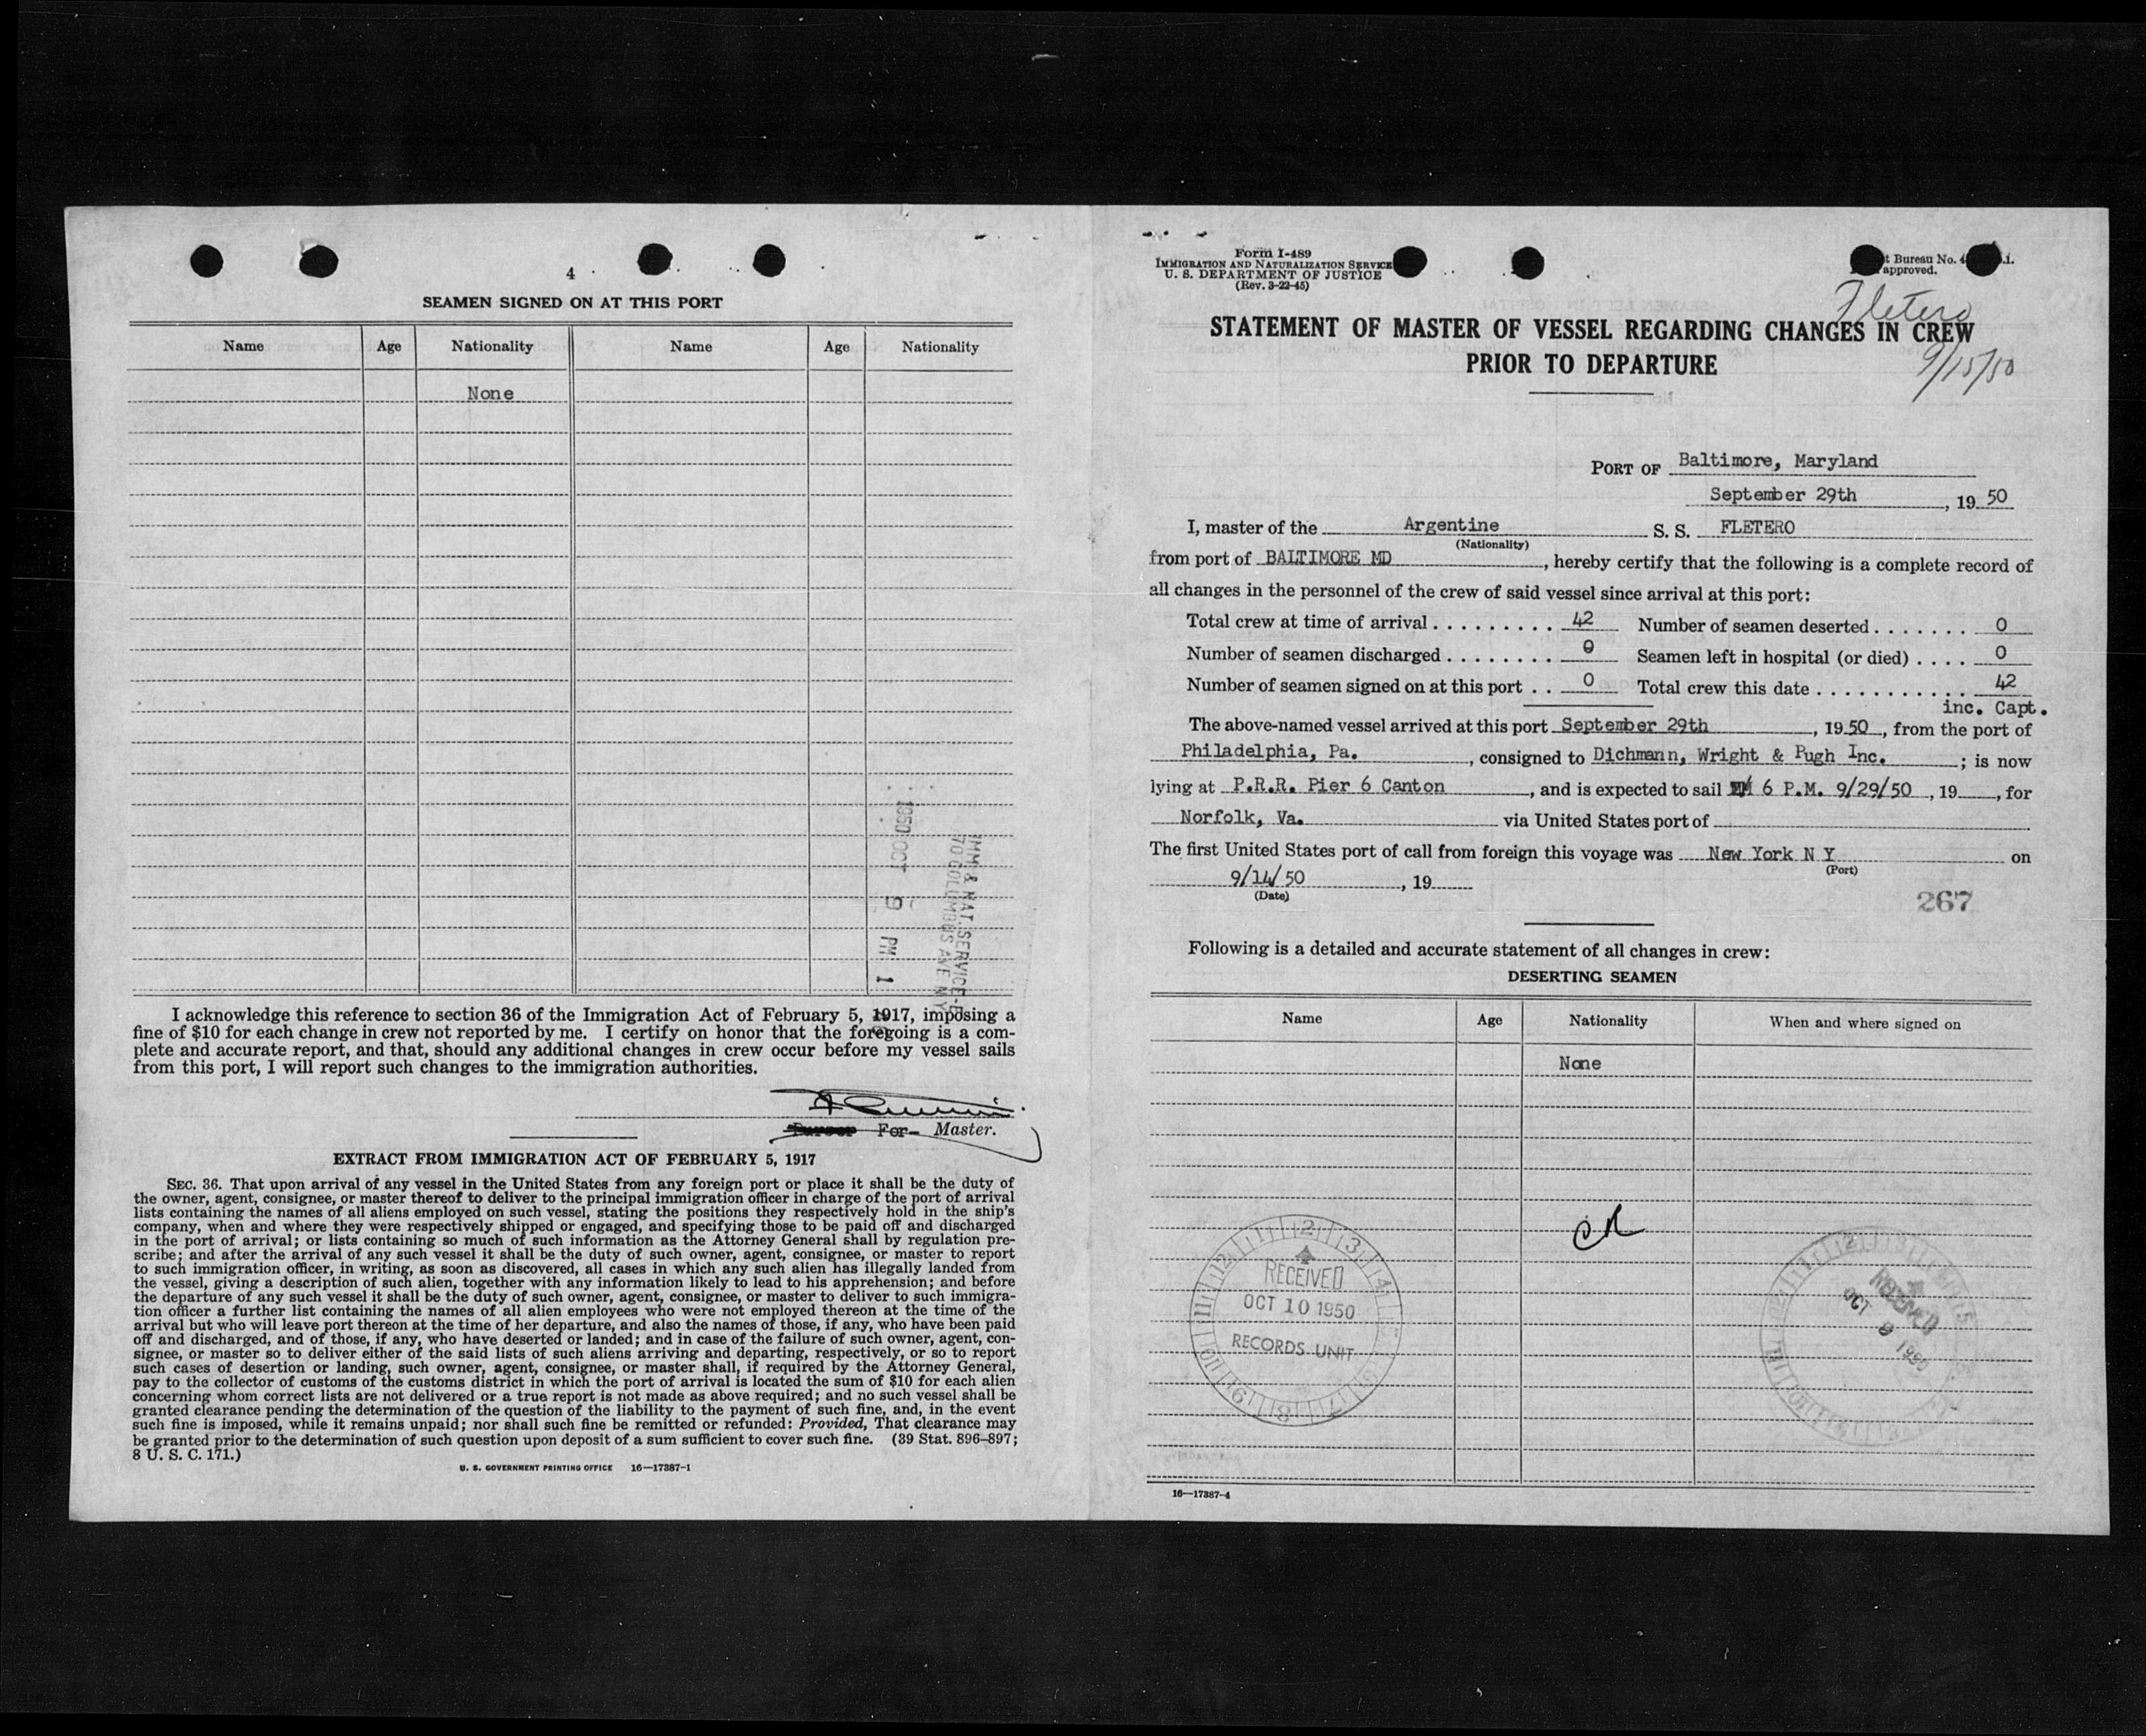 4
SEAMEN SIGNED ON AT THIS PORT
Name Age Nationality Name Age Nationality
None
1950 OCT 9 PM 1
IMM & NAT. SERVICE
70 COLUMBUS AVE N Y
I acknowledge this reference to section 36 of the Immigration Act of February 5, 1917, imposing a
fine of $10 for each change in crew not reported by me. I certify on honor that the foregoing is a com-
plete and accurate report, and that, should any additional changes in crew occur before my vessel sails
from this port, I will report such changes to the immigration authorities.
Purser For- Master.
EXTRACT FROM IMMIGRATION ACT OF FEBRUARY 5, 1917
SEC. 36. That upon arrival of any vessel in the United States from any foreign port or place it shall be the duty of
the owner, agent, consignee, or master thereof to deliver to the principal immigration officer in charge of the port of arrival
lists containing the names of all aliens employed on such vessel, stating the positions they respectively hold in the ship's
company, when and where they were respectively shipped or engaged, and specifying those to be paid off and discharged
in the port of arrival; or lists containing so much of such information as the Attorney General shall by regulation pre-
scribe; and after the arrival of any such vessel it shall be the duty of such owner, agent, consignee, or master to report
to such immigration officer, in writing, as soon as discovered, all cases in which any such alien has illegally landed from
the vessel, giving a description of such alien, together with any information likely to lead to his apprehension; and before
the departure of any such vessel it shall be the duty of such owner, agent, consignee, or master to deliver to such immigra-
tion officer a further list containing the names of all alien employees who were not employed thereon at the time of the
arrival but who will leave port thereon at the time of her departure, and also the names of those, if any, who have been paid
off and discharged, and of those, if any, who have deserted or landed; and in case of the failure of such owner, agent, con-
signee, or master so to deliver either of the said lists of such aliens arriving and departing, respectively, or so to report
such cases of desertion or landing, such owner, agent, consignee, or master shall, if required by the Attorney General,
pay to the collector of customs of the customs district in which the port of arrival is located the sum of $10 for each alien
concerning whom correct lists are not delivered or a true report is not made as above required; and no such vessel shall be
granted clearance pending the determination of the question of the liability to the payment of such fine, and, in the event
such fine is imposed, while it remains unpaid; nor shall such fine be remitted or refunded: Provided, That clearance may
be granted prior to the determination of such question upon deposit of a sum sufficient to cover such fine. (39 Stat. 896–897;
8 U. S. C. 171.)
U. S. GOVERNMENT PRINTING OFFICE 16—17387-1
Form I-489
IMMIGRATION AND NATURALIZATION SERVICE
U. S. DEPARTMENT OF JUSTICE
(Rev. 3-22-45)
Bureau No.
approved.
Fletero
STATEMENT OF MASTER OF VESSEL REGARDING CHANGES IN CREW
PRIOR TO DEPARTURE
9/15/50
PORT OF Baltimore, Maryland
September 29th, 19 50
I, master of the Argentine S. S. FLETERO
(Nationality)
from port of BALTIMORE MD, hereby certify that the following is a complete record of
all changes in the personnel of the crew of said vessel since arrival at this port:
Total crew at time of arrival . . . . . . . . . 42 Number of seamen deserted . . . . . . . 0
Number of seamen discharged . . . . . . . . 0 Seamen left in hospital (or died) . . . . 0
Number of seamen signed on at this port . . 0 Total crew this date . . . . . . . . . . . . 42
inc. Capt.
The above-named vessel arrived at this port September 29th, 19 50, from the port of
Philadelphia, Pa., consigned to Dichmann, Wright & Pugh Inc.; is now
lying at P.R.R. Pier 6 Canton, and is expected to sail 6 P.M. 9/29/50, 19, for
Norfolk, Va. via United States port of
The first United States port of call from foreign this voyage was New York N Y on
(Port)
9/14/50, 19
(Date)
267
Following is a detailed and accurate statement of all changes in crew:
DESERTING SEAMEN
Name Age Nationality When and where signed on
None
RECEIVED
OCT 10 1950
RECORDS UNIT
RECEIVED
OCT 9 1950
16—17387-4